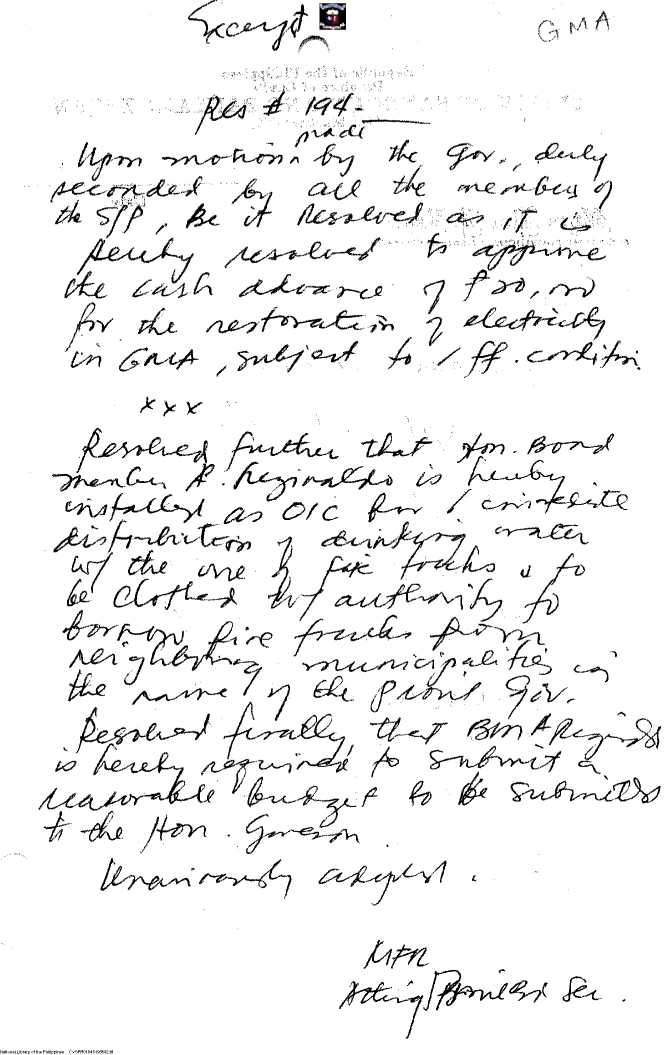 Excerpt
GMA
Republic of the Philippines
Res # 194
made
Upon motion by the Gov., duly
seconded by all the members of
the SPP, Be it Resolved as it is
hereby resolved to approve
the cash advance of ₱20,
for the restoration of electricity
in GMA, subject to / ff. condition
x x x
Resolved further that Hon. Board
member A. Reginaldo is hereby
installed as OIC for /
distribution of drinking water
w/ the use of fire trucks & to
be clothed w/ authority to
borrow fire trucks from
neighboring municipalities in
the name of the Provl. Gov.
Resolved finally, that BM A Reginaldo
is hereby required to submit a
reasonable budget to be submitted
to the Hon. Governor
Unanimously adopted.
MFR
Acting Provincial Sec.
National Library of the Philippines